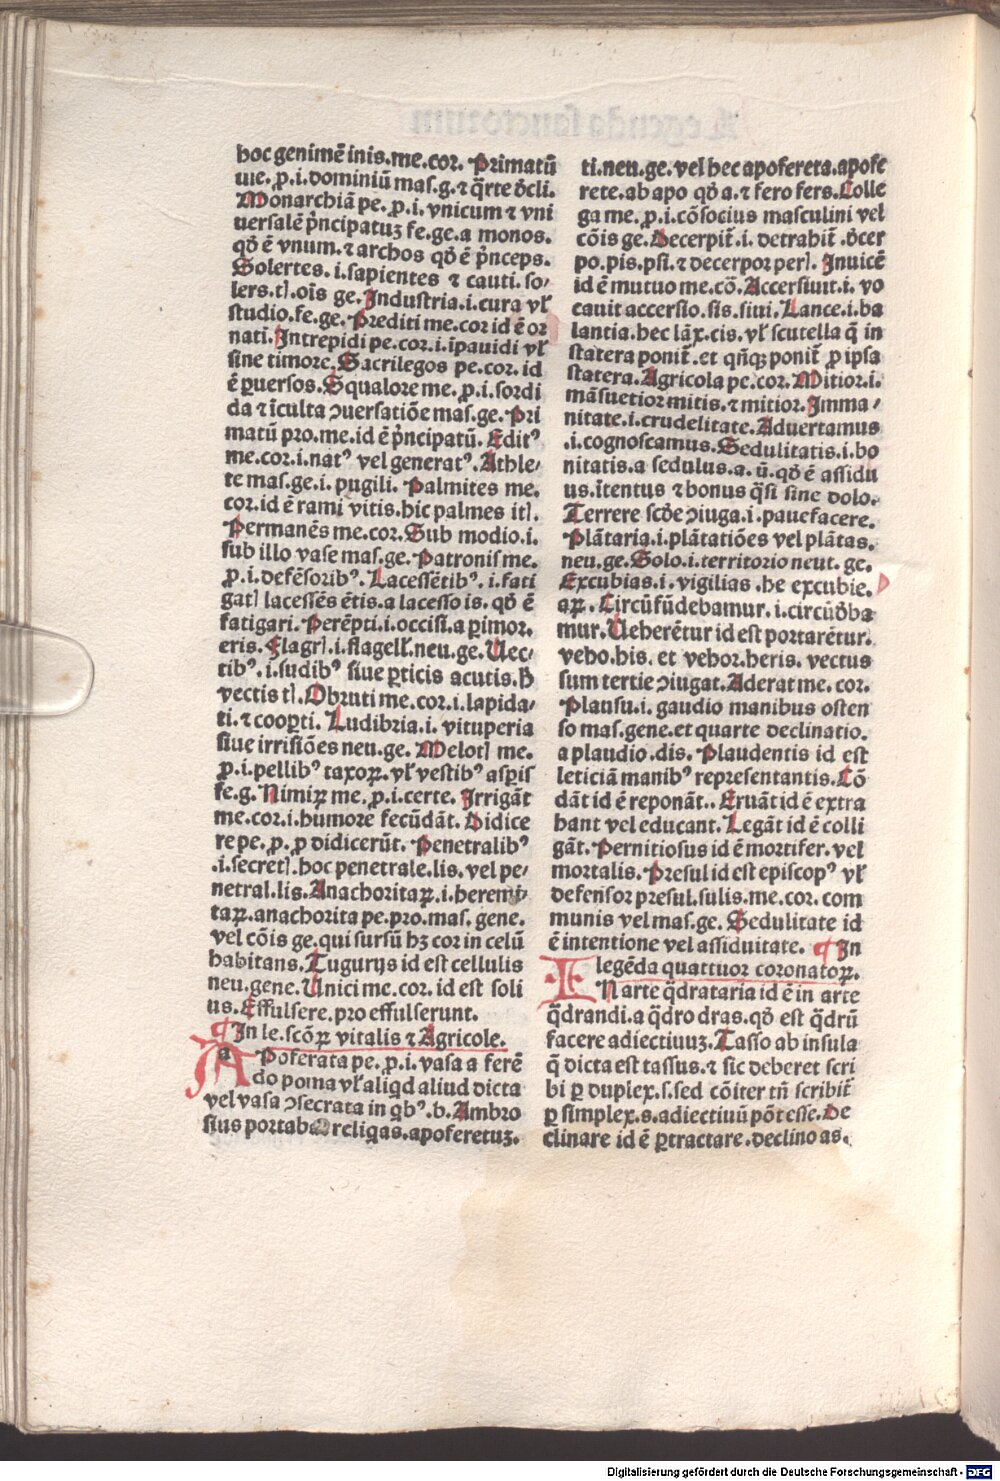 hoc genimē inis.me.cor. Primatū
uie.ꝓ.i.dominiū mas.g.⁊ q̄rte d̓cli.
Monarchiā pe.ꝓ.i.vnicum ⁊ vni
uersalē pͥncipatuꝫ fe.ge.a monos.
qd̓ ē vnum.⁊ archos qd̓ ē pͥnceps.
Solertes.i.sapientes ⁊ cauti.so⸗
lers.tꝭ.oīs ge.Industria.i.cura vl̓
studio.fe.ge.Prediti me.cor id ē or
nati.Intrepidi pe.cor.i.īpauidi vl̓
sine timore.Sacrilegos pe.cor.id
ē ꝑuersos.Squalore me.ꝓ.i.sordi
da ⁊ īculta ↄuersatiōe mas.ge.Pri
matū pro.me.id ē pͥncipatū.Editꝰ
me.cor.i.natꝰ vel generatꝰ.Athle⸗
te mas.ge.i.pugili. Palmites me.
cor.id ē rami vitis.hic palmes itꝭ.
Permanēs me.cor.Sub modio.i.
sub illo vase mas.ge.Patronis me.
ꝓ.i.defēsoribꝰ.Lacessētibꝰ.i.fati
gatꝭ lacessēs ētis.a lacesso is.qd̓ ē
fatigari.Perēpti.i.occisi.a ꝑimor.
eris.Flagrꝭ.i.flagell̓.neu.ge.Uec⸗
tibꝰ.i.sudibꝰ siue ꝑticis acutis.h̓
vectis tꝭ.Obruti me.cor.i.lapida⸗
ti.⁊ cooꝑti. Ludibria.i.vituperia
siue irrisiōes neu.ge. Melotꝭ me.
ꝓ.i.pellibꝰ taxoꝝ.vl̓ vestibꝰ asꝑis
fe.g.Nimiꝝ me.ꝓ.i.certe. Irrigāt
me.cor.i.humore fecūdāt. Didice
re pe.ꝓ.ꝓ didicerūt. Penetralibꝰ
.i.secretꝭ.hoc penetrale.lis.vel pe⸗
netral.lis.Anachoritaꝝ.i.heremi⸗
taꝝ.anachorita pe.pro.mas.gene.
vel cōis ge.qui sursū hꝫ cor in celū
habitans.Tugurijs id est cellulis
neu.gene.Unici me.cor.id est soli
us.Effulsere.pro effulserunt.
¶ In le.scōꝝ vitalis ⁊ Agricole.
A Poferata pe.ꝓ.i.vasa a ferē
do poma vl̓ aliqd aliud dicta
vel vasa ↄsecrata in qbꝰ.b.Ambro
sius portabat reliqas.apoferetuꝫ.
ti.neu.ge.vel hec apofereta.apofe
rete.ab apo qd̓ a.⁊ fero fers.Colle
ga me.ꝓ.i.cōsocius masculini vel
cōis ge.Decerpit̄.i.detrahit̄.d̓cer
po.pis.psi.⁊ decerpor perꝭ.Inuicē
id ē mutuo me.cō.Accersiuit.i.vo
cauit accersio.sis.siui.Lance.i.ba
lantia.hec lāx.cis.vl̓ scutella q̄ in
statera ponit̄.et qn̄qꝫ ponit̄ ꝓ ipsa
statera.Agricola pe.cor.Mitior.i.
māsuetior mitis.⁊ mitior.Imma⸗
nitate.i.crudelitate.Aduertamus
.i.cognoscamus.Sedulitatis.i.bo
nitatis.a sedulus.a.ū.qd̓ ē assidu
us.ītentus ⁊ bonus q̄si sine dolo.
Terrere scd̓e ↄiuga.i.pauefacere.
Plātaria.i.plātatiōes vel plātas.
neu.ge.Solo.i.territorio neut.ge.
Excubias.i.vigilias.he excubie.
aꝝ.Circūfūdebamur.i.circūd̓ba
mur.Ueherētur id est portarētur.
veho.his.et vehor.heris. vectus
sum tertie ↄiugat.Aderat me.cor.
Plausu.i.gaudio manibus osten
so mas.gene.et quarte declinatio.
a plaudio.dis. Plaudentis id est
leticiā manibꝰ representantis.Cō
dāt id ē reponāt..Eruāt id ē extra
hant vel educant.Legāt id ē colli
gāt.Pernitiosus id ē mortifer.vel
mortalis.Presul id est episcopꝰ vl̓
defensor presul.sulis.me.cor.com
munis vel mas.ge. Sedulitate id
ē intentione vel assiduitate. ¶ In
legēda quattuor coronatoꝝ.
I N arte q̄drataria id ē in arte
q̄drandi.a q̄dro dras.qd̓ est q̄drū
facere adiectiuuꝫ.Tasso ab insula
q̄ dicta est tassus.⁊ sic deberet scri
bi ꝑ duplex.s.sed cōiter tn̄ scribit̄
ꝑ simplex.s.adiectiuū pōt esse.De
clinare id ē ꝑtractare.declino as.
Digitalisierung gefördert durch die Deutsche Forschungsgemeinschaft - DFG